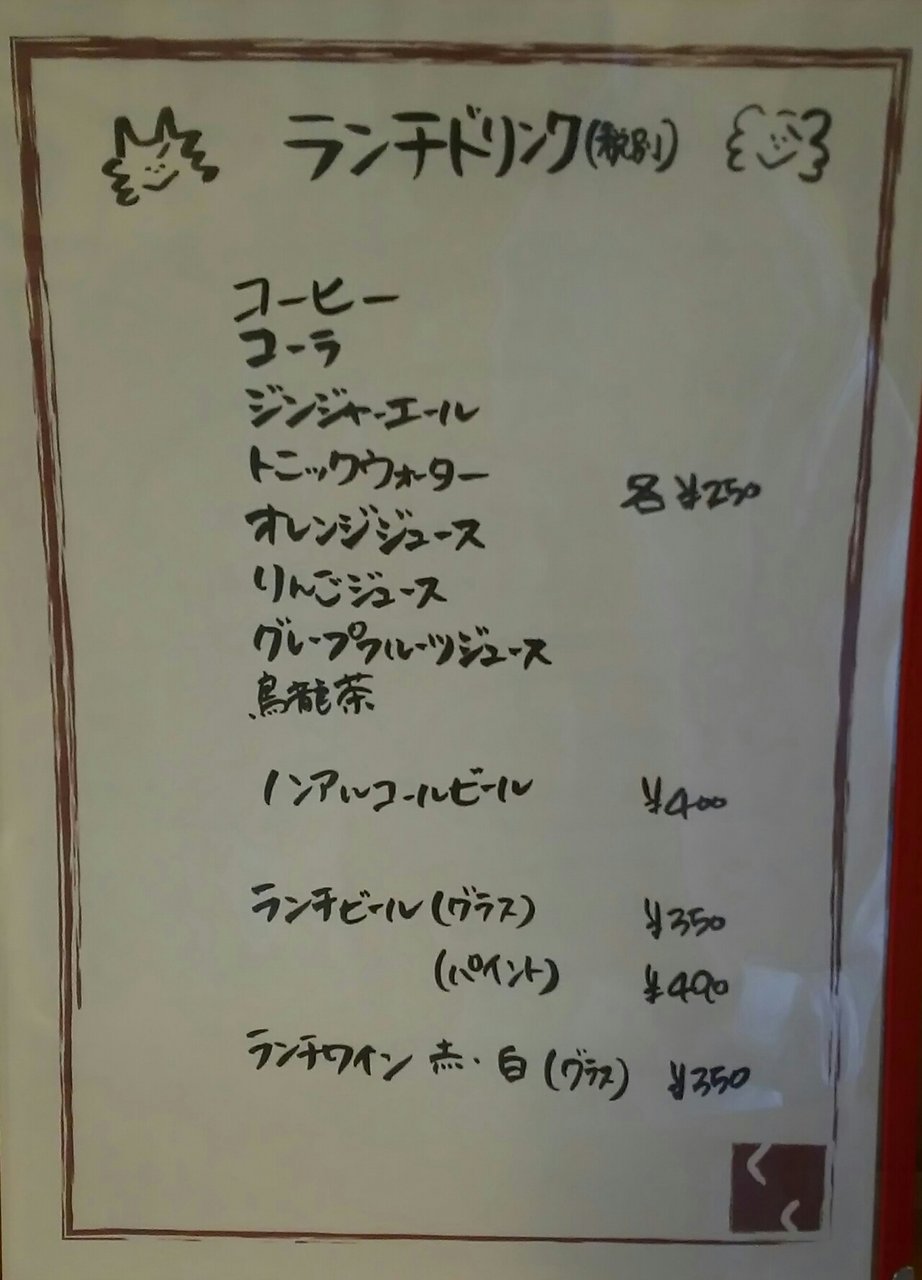 ランチドリンク(税別)
コーヒー
コーラ
ジンジャーエール
トニックウォーター
各 ¥250
オレンジジュース
りんごジュース
グレープフルーツジュース
烏龍茶
ノンアルコールビール ¥400
ランチビール(グラス) ¥350
(パイント) ¥490
ランチワイン 赤・白(グラス) ¥350